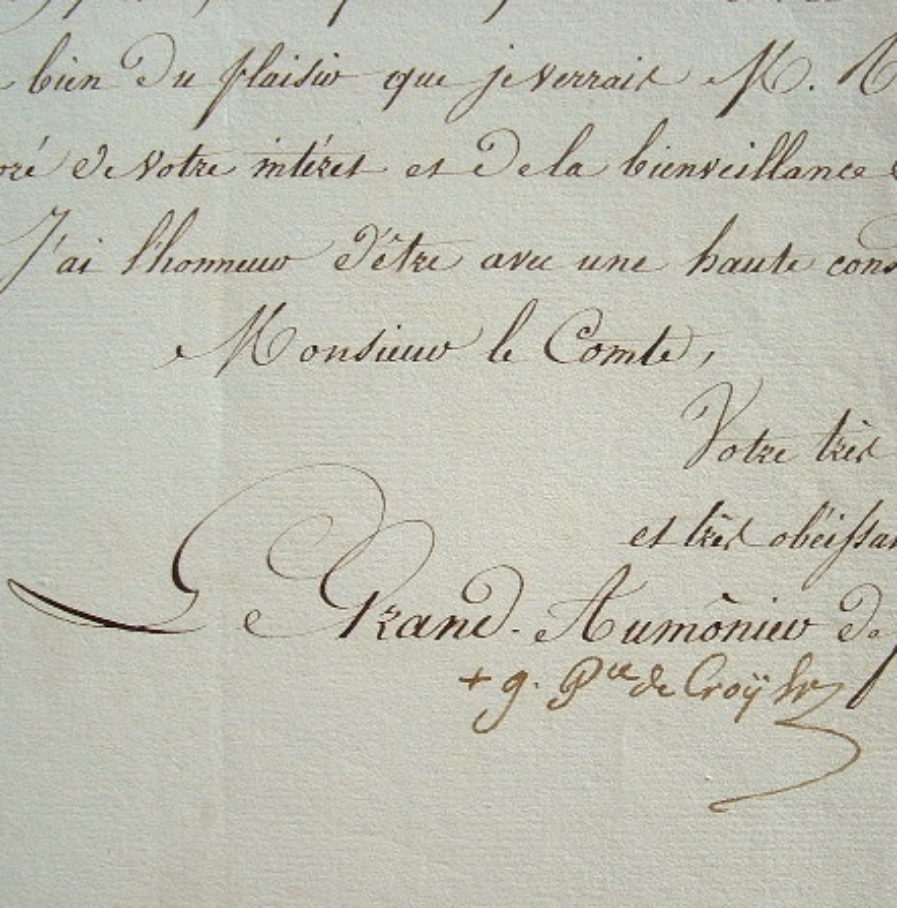 bien du plaisir que je verrais M.
oré de votre intéret et de la bienveillance
J'ai l'honneur d'être avec une haute cons
Monsieur le Comte,
Votre très
et très obéissan
Le Grand-Aumônier de
+ g. Pce de Croÿ